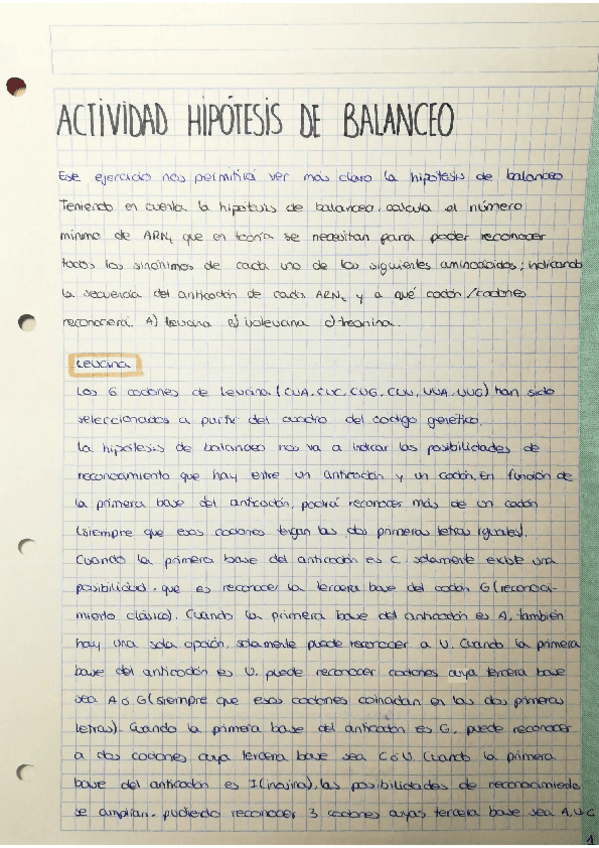 ACTIVIDAD HIPÓTESIS DE BALANCEO
Este ejercicio nos permitirá ver más claro la hipótesis de balanceo
Teniendo en cuenta la hipótesis de balanceo, calcula el número
mínimo de ARNt que en teoría se necesitan para poder reconocer
todos los sinónimos de cada uno de los siguientes aminoácidos; indicando
la secuencia del anticodón de cada ARNt y a qué codón/codones
reconocerá. A) leucina B) isoleucina C) treonina.
Leucina
Los 6 codones de Leucina (CUA, CUC, CUG, CUU, UUA, UUG) han sido
seleccionados a partir del cuadro del código genético.
La hipótesis de balanceo nos va a indicar las posibilidades de
reconocimiento que hay entre un anticodón y un codón. En función de
la primera base del anticodón, podrá reconocer más de un codón
(siempre que esos codones tengan las dos primeras letras iguales).
Cuando la primera base del anticodón es C, solamente existe una
posibilidad, que es reconocer la tercera base del codón G (reconoci-
miento clásico). Cuando la primera base del anticodón es A, también
hay una sola opción, solamente puede reconocer a U. Cuando la primera
base del anticodón es U, puede reconocer codones cuya tercera base
sea A o G (siempre que esos codones coincidan en las dos primeras
letras). Cuando la primera base del anticodón es G, puede reconocer
a dos codones cuya tercera base sea C o U. Cuando la primera
base del anticodón es I (inosina), las posibilidades de reconocimiento
se amplían, pudiendo reconocer 3 codones cuyas tercera base sea A, U o C
1